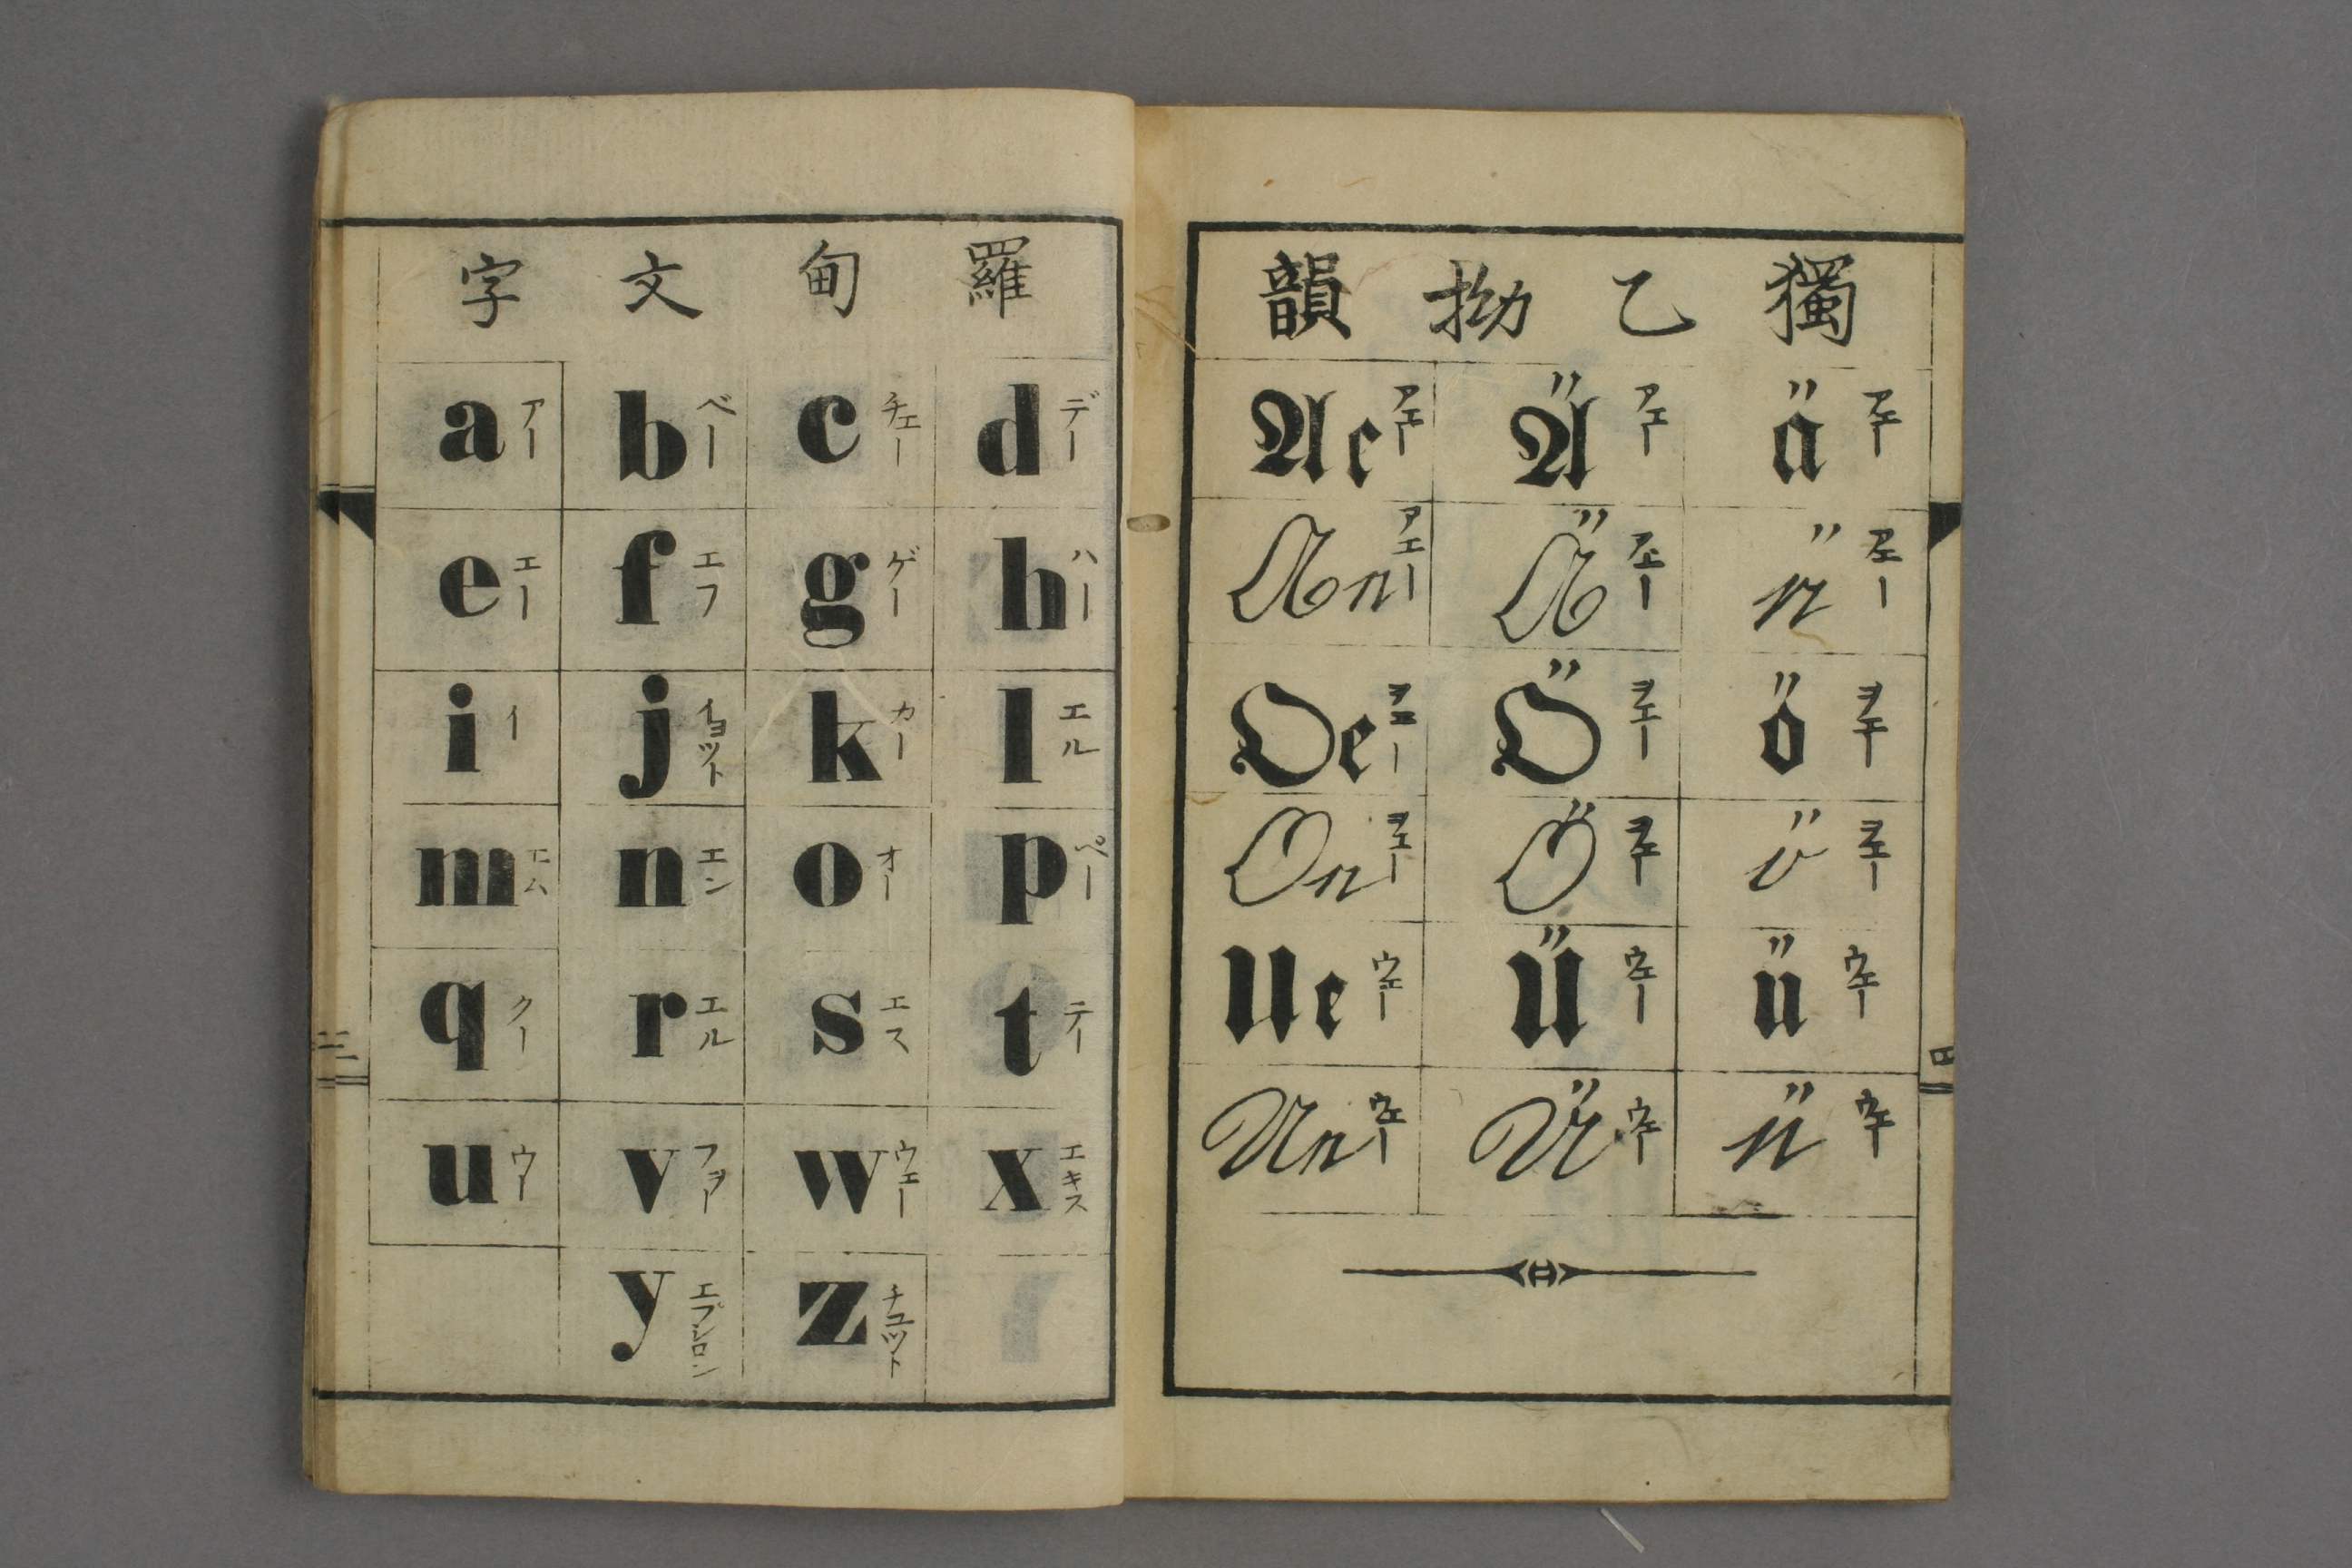 羅甸文字
a アー b ベー c チェー d デー
e エー f エフ g ゲー h ハー
i イ j イヨット k カー l エル
m エム n エン o オー p ペー
q クー r エル s エス t テー
u ウー v フアヲー w ウェー x エキス
y エプシロン z チュット
三
獨乙拗韻
Ae アエー Ä アエー ä アエー
Ae アエー Ä アエー ä アエー
Oe ヲエー Ö ヲエー ö ヲエー
Oe ヲエー Ö ヲエー ö ヲエー
Ue ウエー Ü ウエー ü ウエー
Ue ウエー Ü ウエー ü ウエー
四